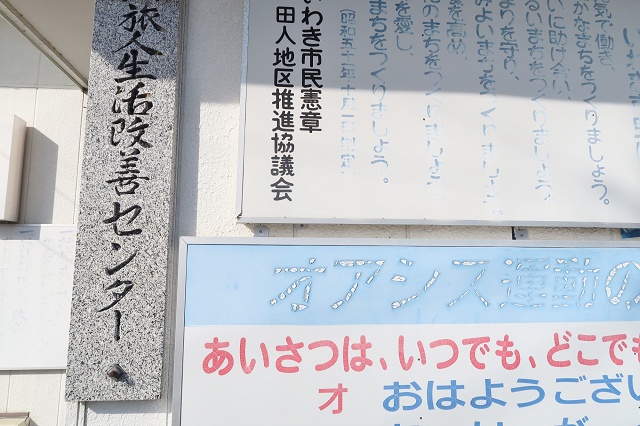 旅人生活改善センター
気で働き、
かなまちをつくりましょう。
いに助け合い、
るいまちをつくりましょう。
よりを守り、
みよいまちをつくりましょう。
を高め、
のまちをつくりましょう。
を愛し、
まちをつくりましょう。
いわき市民憲章
田人地区推進協議会
オアシス運動の
あいさつは、いつでも、どこでも
オ おはようござい